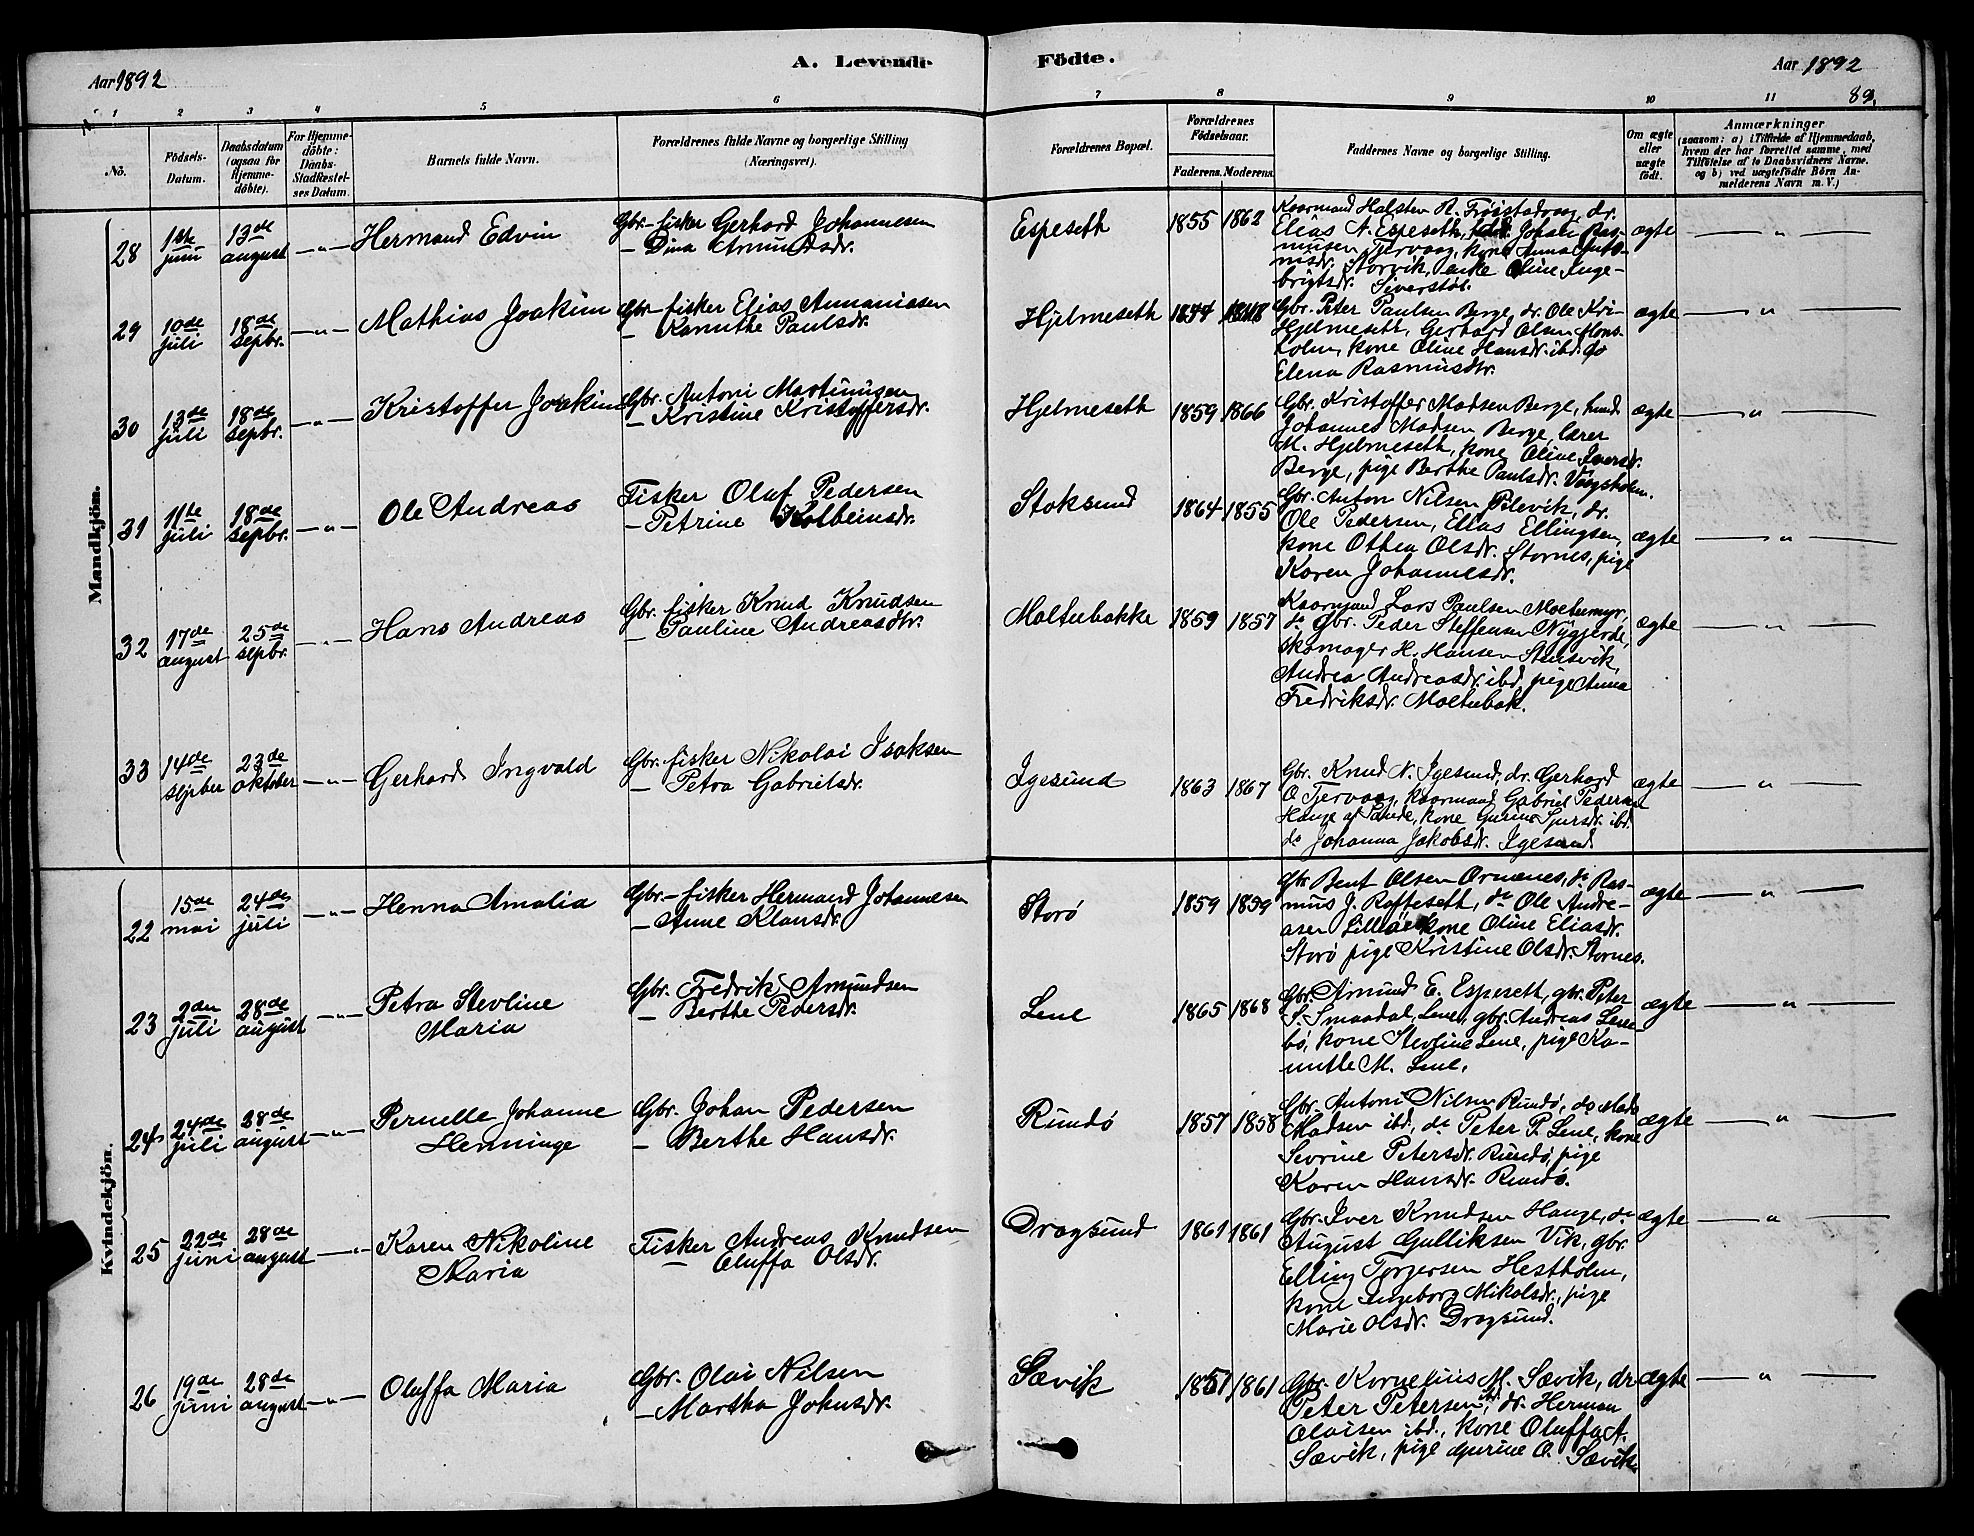 Aar 1892
A. Levende
Födte.
Aar 1892
89.
1 2 3 4 5 6 7 8 9 10 11
No.
Födsels-
Datum.
Daabsdatum
(ogsaa for
Hjemme-
döbte).
For Hjemme-
döbte:
Daabs-
Stadfæstel-
ses Datum.
Barnets fulde Navn.
Forældrenes fulde Navne og borgerlige Stilling
(Næringsvei).
Forældrenes Bopæl.
Forældrenes
Födselsaar.
Faderens. Moderens.
Faddernes Navne og borgerlige Stilling.
Om ægte
eller
uægte
födt.
Anmærkninger
(saasom: a) i Tilfælde af Hjemmedaab,
hvem der har forrettet samme, med
Tilföielse af to Daabsvidners Navne.
og b) ved uægtefödte Börn An-
melderens Navn m. V.)
Mandkjön.
28
1ste
juni
13de
august
Hermand Edvin
Gbr.-fisker Gerhard Johannesen
– Dina Amundsdr.
Espeseth
1855 1862
Kaarmand Halsten R. Frøistadvaag, dr.
Elias N. Espeseth, Johan Ras-
musen Tjervaag, kone Anna Anto-
nisdr. Storvik, enke Oline Inge-
brigtsdr. Siverstøl.
ægte
29
10de
juli
18de
sepbr.
Mathias Joakim
Gbr.-fisker Elias Annaniasen
– Ramuthe Paulsdr.
Hjelmeseth
Gbr. Peter Paulsen Berge, dr. Ole Kri-
Hjelmeseth, Gerhard Olsen Mons-
holm, kone Oline Hansdr. ibd. do
Elena Rasmusdtr.
ægte
30
13de
juli
18de
sepbr.
Kristoffer Joakim
Gbr. Antoni Martinusen
– Kristine Kristoffersdr.
Hjelmeseth
1859 1866
Gbr. Kristoffer Madsen Berge, hund
Johannes Madsen Berge, lærer
M. Hjelmeseth, kone Oline Iversdr.
Berge, pige Berthe Paulsdr. Vaagsholm.
ægte
31
11te
juli
18de
sepbr.
Ole Andreas
Fisker Oluf Pedersen
– Petrine Kolbeinsdr.
Stoksund
1864 1855
Gbr. Anton Nilsen Pilevik, dr.
Ole Pedersen, Elias Ellingsen,
kone Othea Olsdr. Stornes, pige
Karen Johannesdr.
ægte
32
17de
august
25de
sepbr.
Hans Andreas
Gbr. fisker Knud Knudsen
– Pauline Andreasdtr.
Moltubakke
1859 1857
Kaarmand Lars Paulsen Moltumyr,
do Gbr. Peder Steffensen Nygjerde,
skomager H. Hansen Stensvik,
Andrea Andreasdr. ibd, pige Anna
Fredriksdr. Moltubak.
ægte
33
14de
sepber
23de
oktober
Gerhard Ingvald
Gbr. fisker Nikolai Isaksen
– Petra Gabrielsdr.
Igesund
1863 1867
Gbr. Knud N. Igesund, dr. Gerhard
O Tjervaag, kaarmand Gabriel Pedersen
Hauge af Sande, kone Gurine Sjursdr. ibd.
do Johanna Jakobsdr. Igesund
ægte
Kvindekjön.
22
15de
mai
24de
juli
Henna Amalia
Gbr.-fisker Hermand Johannesen
– Anne Klausdr.
Storø
1859 1859
Gbr Bent Olsen Ormenes, do Ras-
mus J. Rafteseth, do Ole Andre-
asen Lilleø kone Oline Eliasdr.
Storø pige Kristine Olsdr. Stornes.
ægte
23
2den
juli
28de
august
Petra Stevline
Maria
Gbr. Fredrik Amundsen
– Berthe Pedersdr.
Lene
1865 1868
Gbr. Amund E. Espeseth, gbr. Peter
S. Smaadal, Lene, gbr. Andreas Lene-
bö, kone Stevline Lene, pige Ra-
nuthe M. Lene.
ægte
24
24de
juli
28de
august
Pernelle Johanne
Henninge
Gbr. Johan Pedersen
– Berthe Hansdr.
Rundø
1857 1858
Gbr. Antoni Nilsen Rundø, do Mads
Madsen ibd, do Peter P. Lene, kone
Sevrine Petersdr. Rundø, pige
Karen Hansdr. Rundø.
ægte
25
22de
juni
28de
august
Karen Nikoline
Maria
Fisker Andreas Knudsen
Oluffa Olsdr.
Dragsund
1861 1861
Gbr. Iver Knudsen Hauge, do
August Gulliksen Vik, gbr.
Elling Torjersen Hestholm,
kone Ingeborg Nikolsdr., pige
Marie Olsdr. Dragsund.
ægte
26
19de
juni
28de
august
Oluffa Maria
Gbr. Olai Nilsen
– Martha Johnsdr.
Sævik
1851 1861
Gbr. Kornelius M. Sævik, dr
Peter Petersen ibd, dr. Herman
Olaisen ibd., kone Oluffa A.
Sævik, pige Gurine O. Sævik
ægte